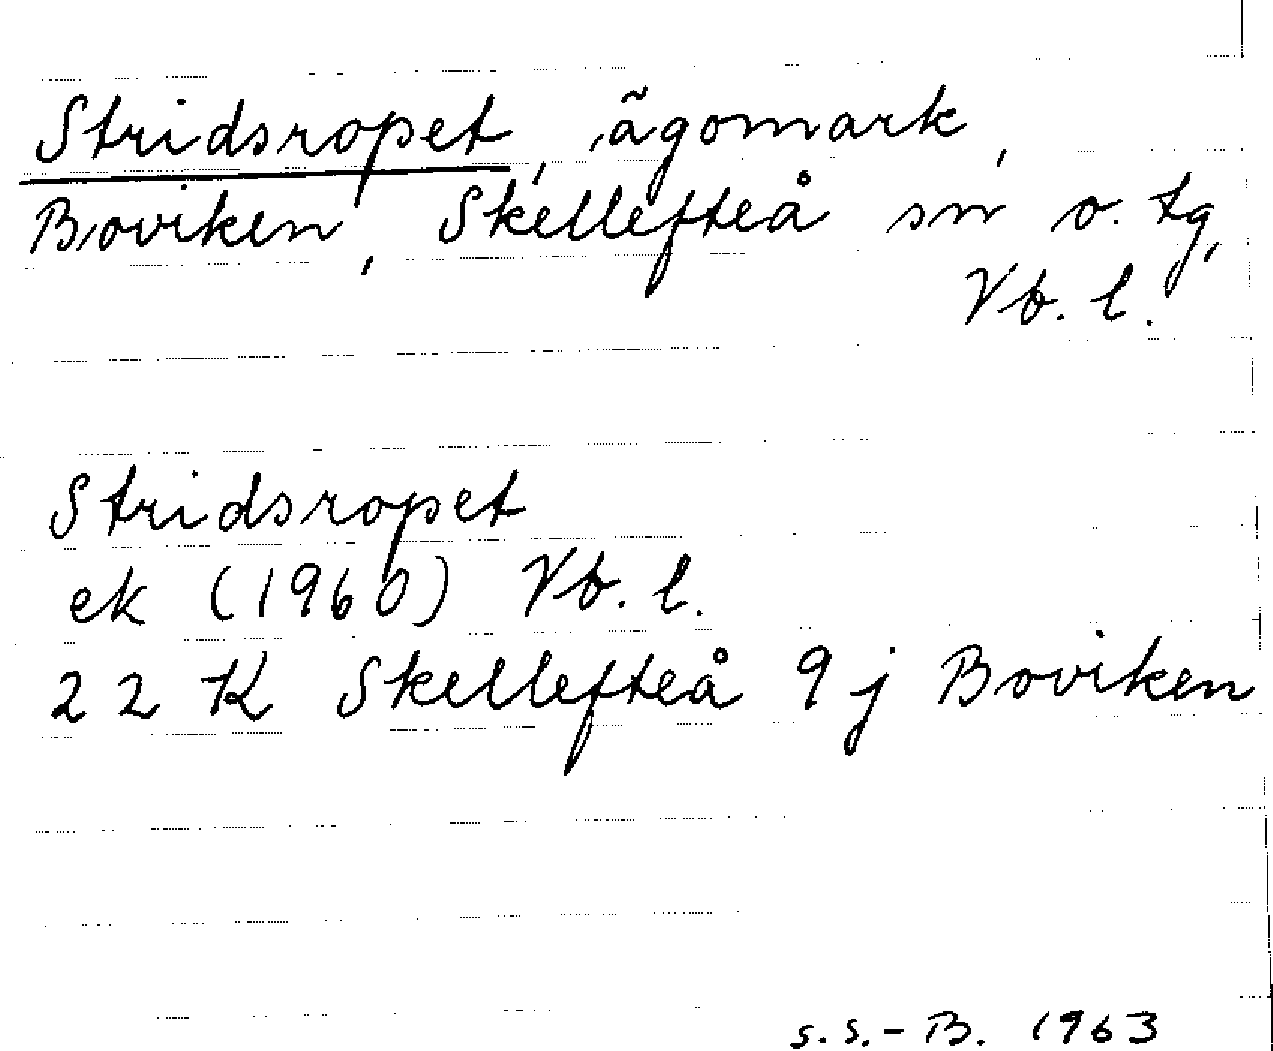 Stridsropet, ägomark,
Boviken, Skellefteå sn o. tg,
Vb. l.
Stridsropet
ek (1960) Vb. l.
22 K Skellefteå 9 j Boviken
S.S.-B. 1963